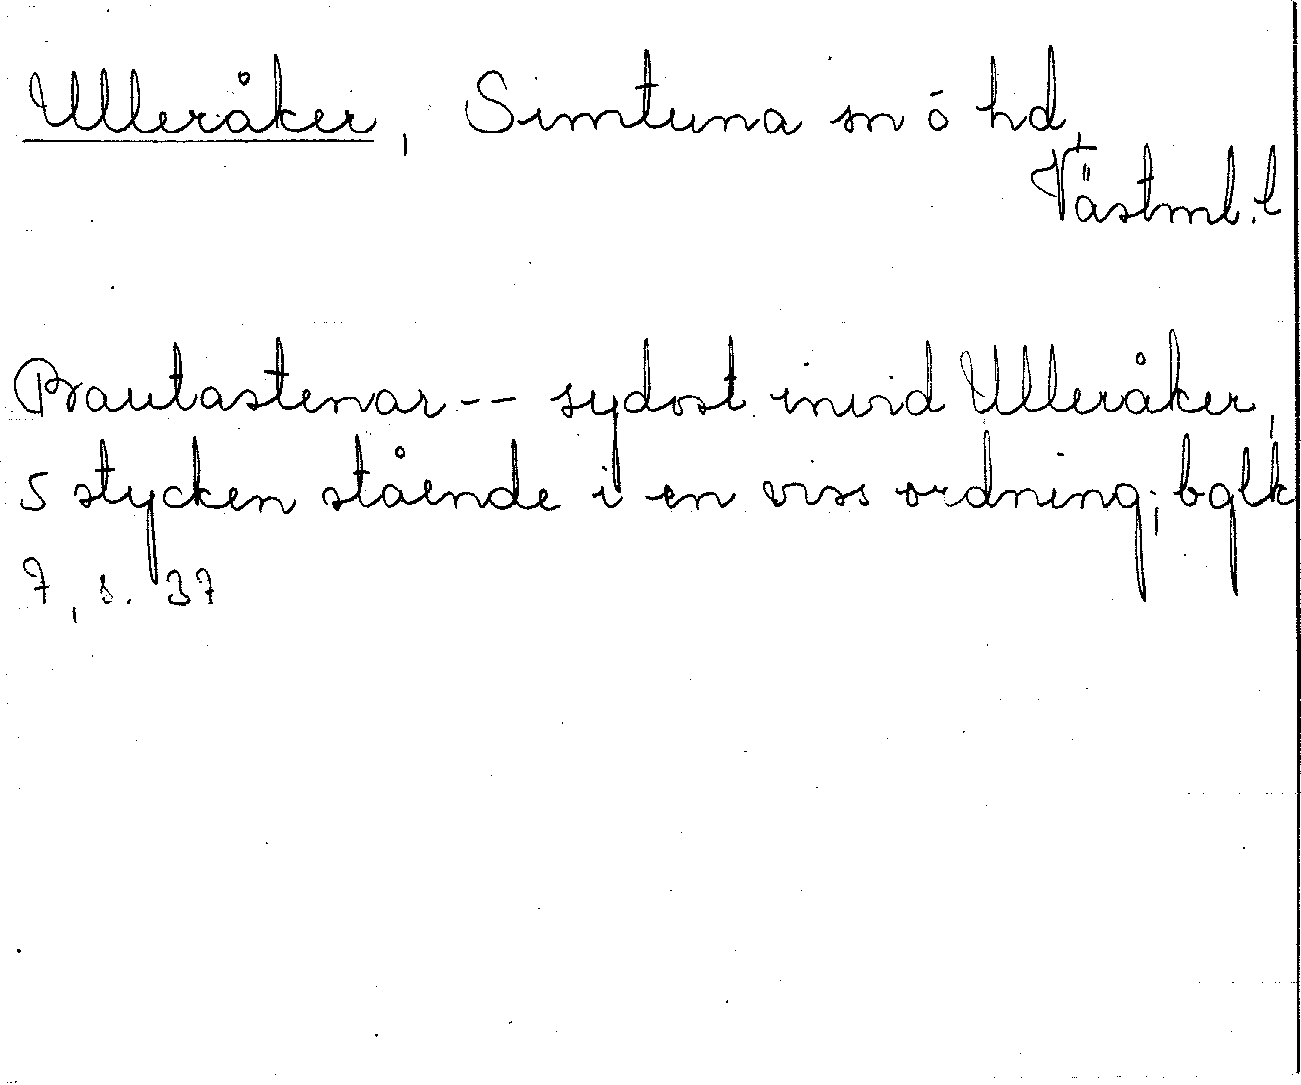 Ulleråker, Simtuna sn ö hd,
Västml. l
Brautastenar -- sydost invid Ulleråker,
5 stycken stående i en viss ordning; bglk
7, s. 37